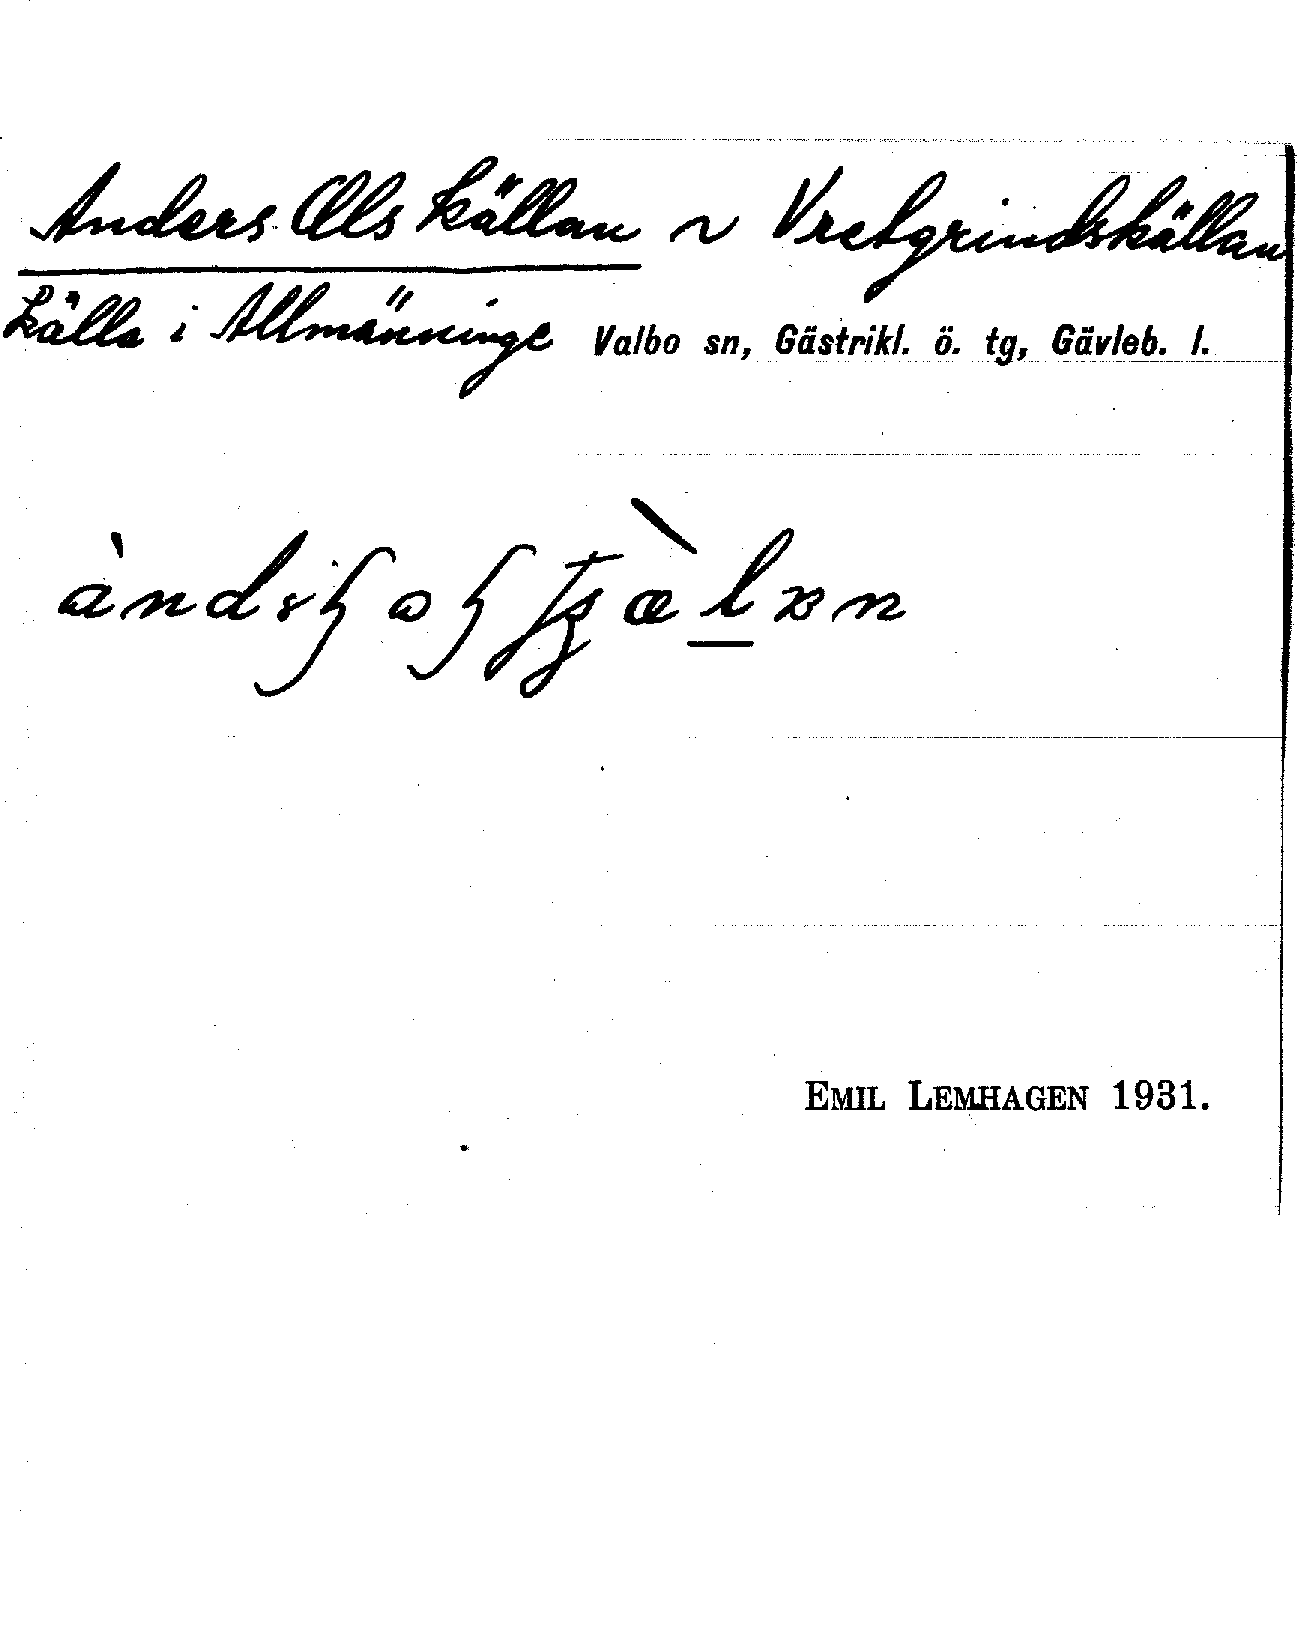 Anders Ols källan ~ Vretgrindskällan
källa i Allmänninge Valbo sn, Gästrikl. ö. tg, Gävleb. l.
EMIL LEMHAGEN 1931.